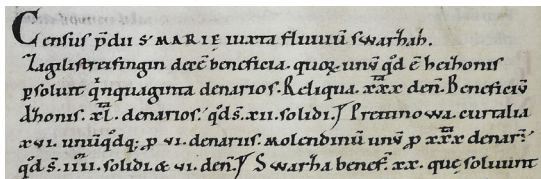 Census p̄dii S MARIE iuxta fluuiū swarhah.
Zagilistreifingin decē beneficia. quoꝝ unū qd ē heihonis
ꝑsoluit qͥnquaginta denarios. Reliqua. xxx den̄. Beneficiū
dhonis. xl. denarios. qd̄ s̄. xii. solidi. Pretinowa. curtalia
xvi. unūqdq; ꝓ vi. denariis. molendinū unū ꝓ xxx denar.
qd̄ s̄. iiii. solidi. & vi. den̄. Swarha benef. xx. quę soluunt